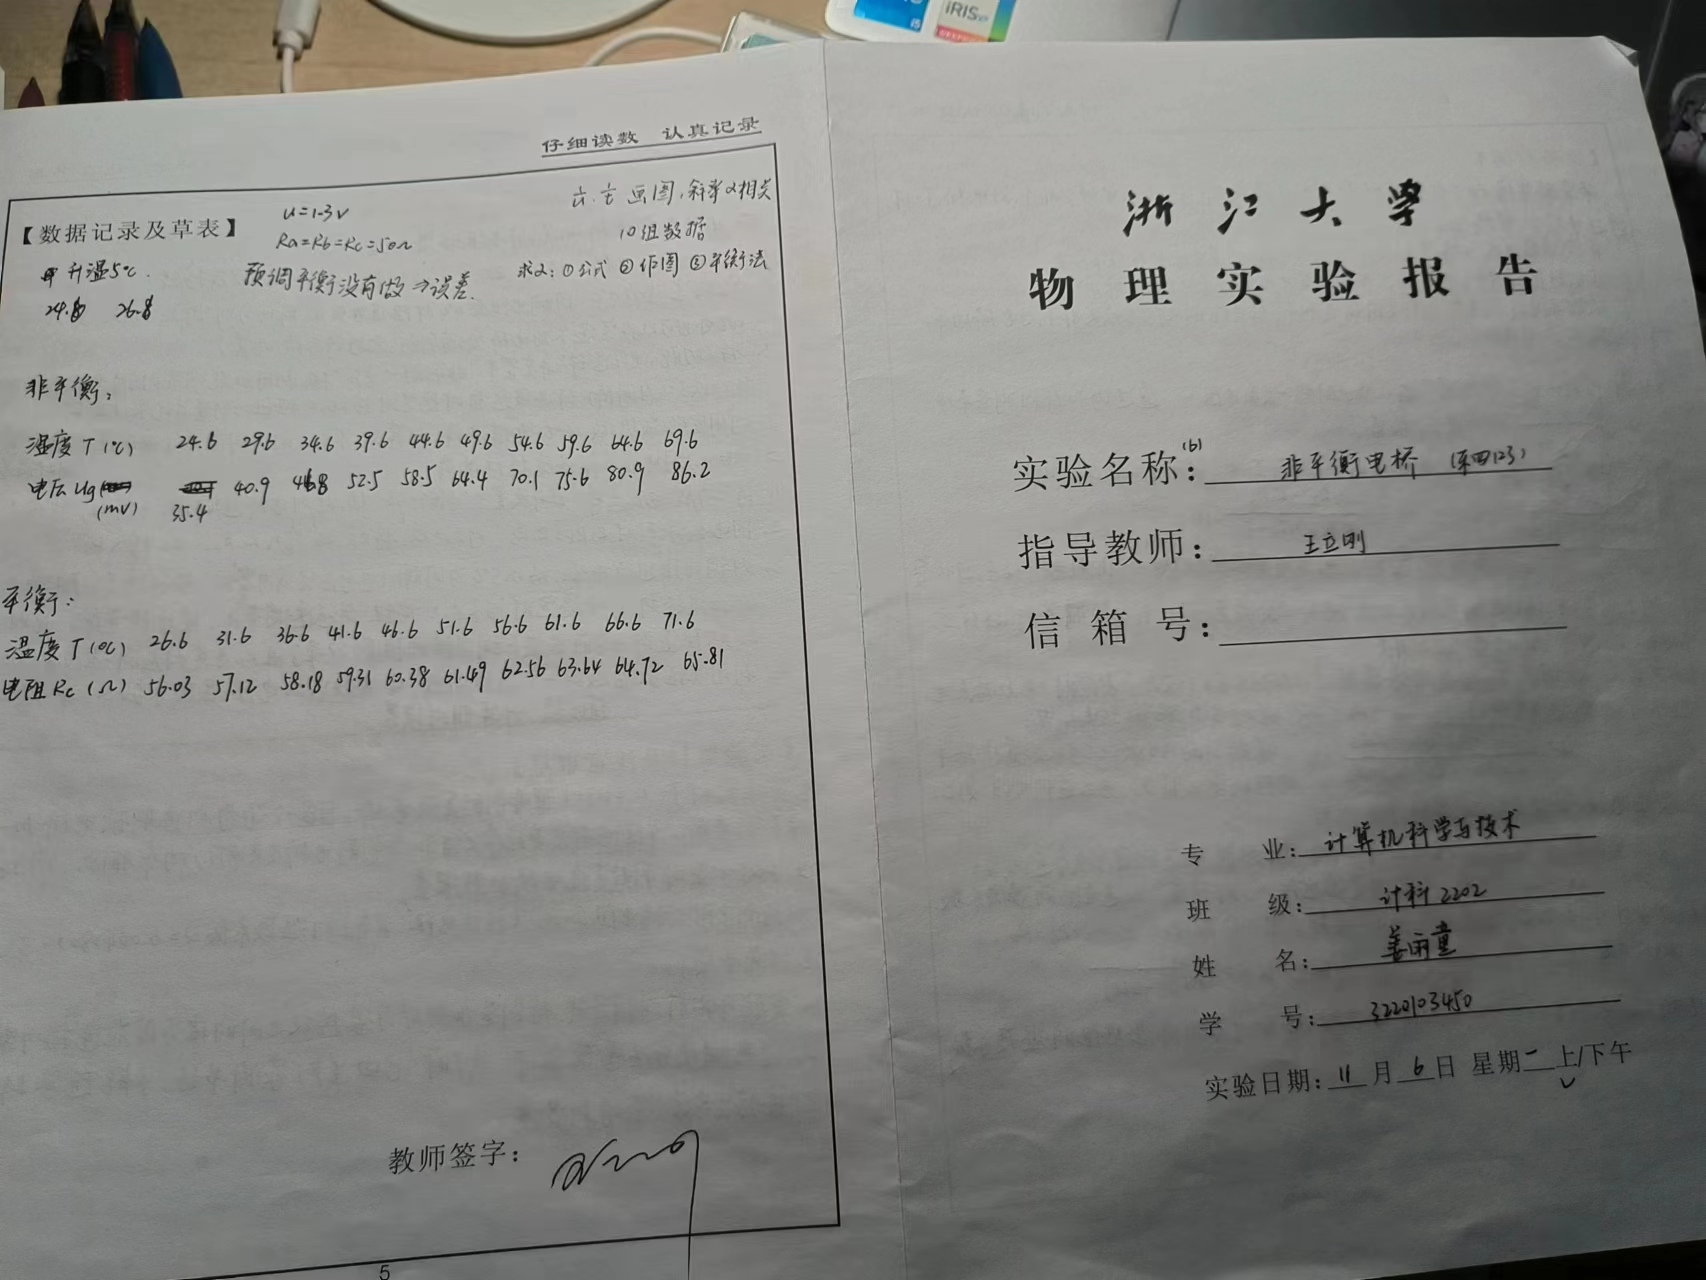 仔细读数 认真记录
【数据记录及草表】
U=1.3V
Ra=Rb=Rc=50Ω
画图,斜率α相关
10组数据
求α:①公式 ②作图 ③平衡法
预调平衡没有做⇒误差.
升温5℃.
24.6 26.6
非平衡:
温度T(℃) 24.6 29.6 34.6 39.6 44.6 49.6 54.6 59.6 64.6 69.6
电压Ug(mV) 35.4 40.9 46.8 52.5 58.5 64.4 70.1 75.6 80.9 86.2
平衡:
温度T(℃) 26.6 31.6 36.6 41.6 46.6 51.6 56.6 61.6 66.6 71.6
电阻Rc(Ω) 56.03 57.12 58.18 59.31 60.38 61.49 62.56 63.64 64.72 65.81
教师签字:
5
iRIS
i5
浙江大学
物理实验报告
实验名称: 非平衡电桥
指导教师: 王立刚
信箱号:
专业: 计算机科学与技术
班级: 计科2202
姓名: 姜雨童
学号: 3220103450
实验日期: 11月6日 星期二上/下午